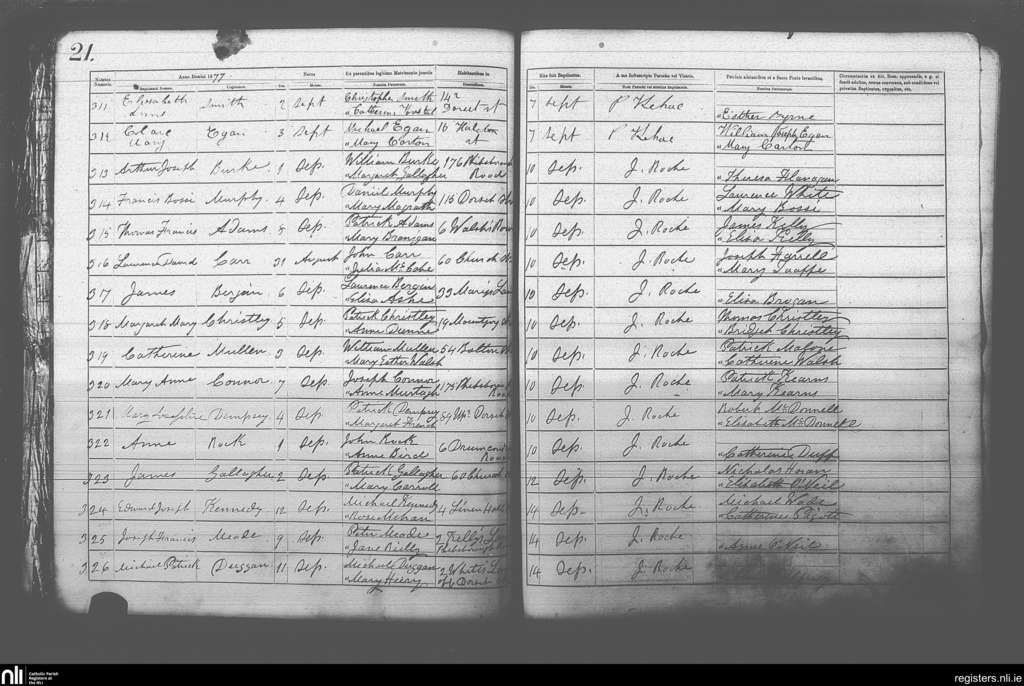 21.
Anno Domini 1877
Natus
Ex parentibus legitimo Matrimonio junctis
Habitantibus in
Rite fuit Baptizatus.
A me Infrascripto Parocho vel Vicario.
311 Elisabeth Smith 2 Sept Christopher Smith 142 7 Sept P Kehae
Anne " Catherine Dorset st " Esther Byrne
312 Clare Egan 3 Sept Michael Egan 16 Halston 7 Sept P Kehae William Joseph Egan
Mary " Mary Carton st " Mary Carton
313 Arthur Joseph Burke 1 Sep. William Burke 176 Phibsboro 10 Sep. J. Roche
" Margaret Gallagher Road " Theresa Flanagan
314 Francis Bossi Murphy 4 Sep. Daniel Murphy 115 Dorset 10 Sep. J. Roche Laurence White
" Mary Magrath " Mary Bossi
315 Thomas Francis Adams 5 Sep. Patrick Adams 6 Walsh's Row 10 Sep. J. Roche James Kelly
" Mary Branigan " Eliza Kelly
316 Laurence David Carr 31 August John Carr 60 Church 10 Sep. J. Roche Joseph Farrell
" Julia McCabe " Mary Taaffe
317 James Bergin 6 Sep. Laurence Bergan 33 Mary's Lan 10 Sep. J. Roche
" Eliza Ashe " Eliza Brogan
318 Margaret Mary Christley 5 Sep. Patrick Christley 19 Mountjoy 10 Sep. J. Roche Thomas Christley
" Anne Dunne " Bridget Christley
319 Catherine Mullen 3 Sep. William Mullen 54 Bolton 10 Sep. J. Roche Patrick Malone
" Mary Esther Walsh " Catherine Walsh
320 Mary Anne Connor 7 Sep. Joseph Connor 175 Phibsboro 10 Sep. J. Roche Patrick Kearns
" Anne Murtagh Road " Mary Kearns
321 Mary Josephine Dempsey 4 Sep. Patrick Dempsey 59 Upr Dorset 10 Sep. J. Roche Robert McDonnell
" Margaret French " Elisabeth McDonnell
322 Anne Rock 1 Sep. John Rock 6 Drumcondra 10 Sep. J. Roche
" Anne Bird Road " Catherine Duff
323 James Gallagher 2 Sep. Patrick Gallagher 60 Church 12 Sep. J. Roche Nicholas Horan
" Mary Carroll " Elisabeth O'Neil
324 Edward Joseph Kennedy 12 Sep. Michael Kennedy 4 Linen Hall 14 Sep. J. Roche Michael Wade
" Rose Mehan " Catherine Pigott
325 Joseph Francis Meade 9 Sep. Peter Meade 2 Kelly's 14 Sep. J. Roche
" Jane Reilly Phibsborough " Agnes O'Neil
326 Michael Patrick Duggan 11 Sep. Michael Duggan 2 White's Lan 14 Sep. J. Roche
" Mary Henry off Dorset
nli Catholic Parish Registers at the NLI
registers.nli.ie